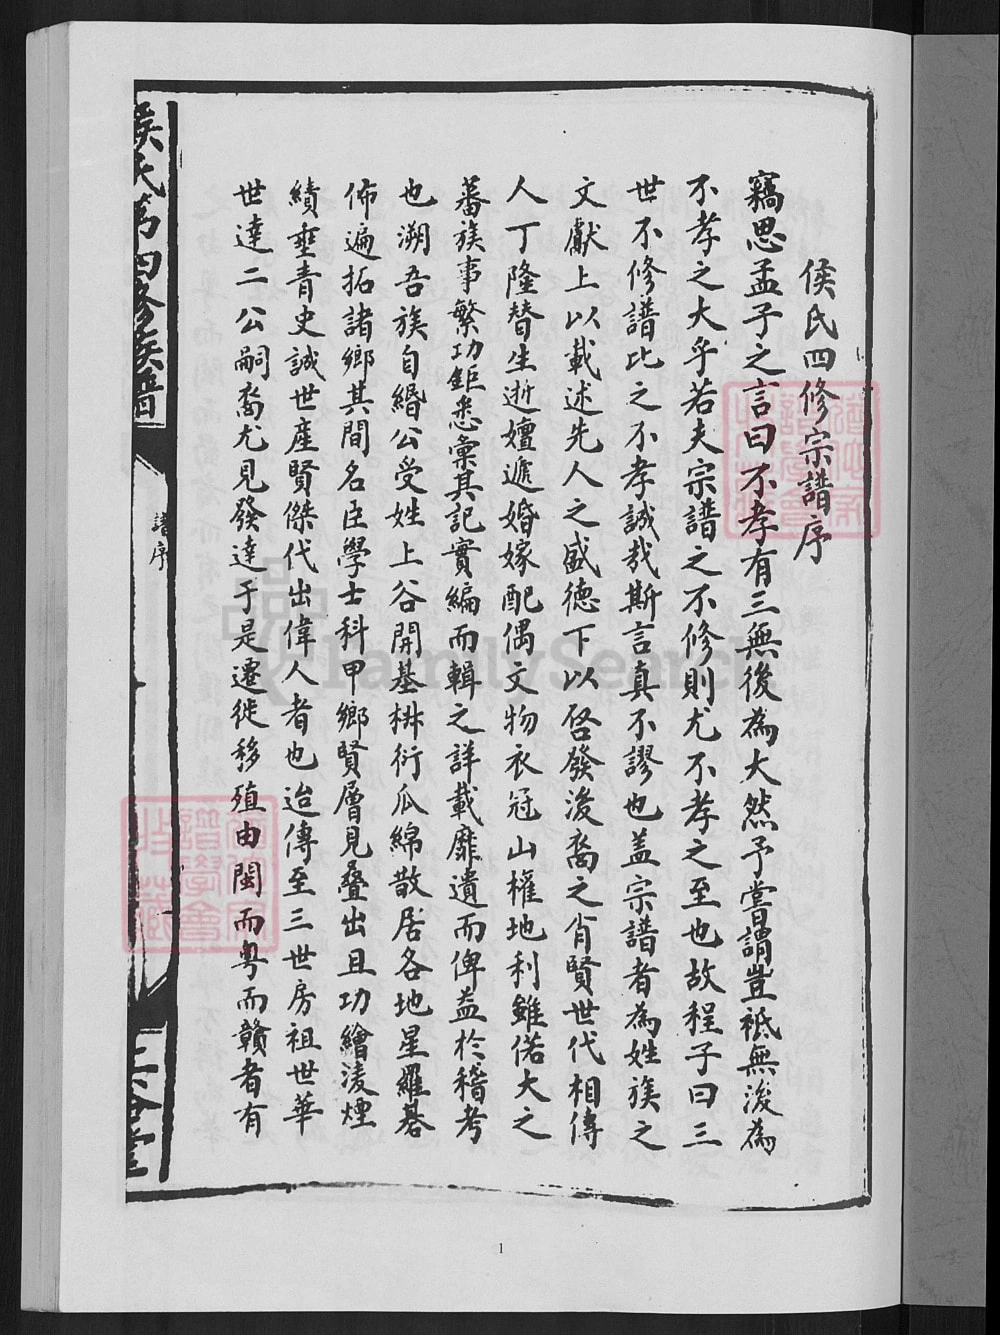 侯氏四修宗譜序
竊思孟子之言曰不孝有三無後為大然予嘗謂豈祗無後為
不孝之大乎若夫宗譜之不修則尤不孝之至也故程子曰三
世不修譜比之不孝誠哉斯言真不謬也蓋宗譜者為姓族之
文獻上以載述先人之盛德下以啓發後裔之肖賢世代相傳
人丁隆替生逝嬗遞婚嫁配偶文物衣冠山權地利雖偌大之
蕃族事繁功鉅悉彙其記實編而輯之詳載靡遺而俾益於稽考
也溯吾族自緡公受姓上谷開基栟衍瓜綿散居各地星羅碁
佈遍拓諸鄉其間名臣學士科甲鄉賢層見叠出且功繪凌煙
績垂青史誠世産賢傑代出偉人者也迨傳至三世房祖世華
世達二公嗣裔尤見發達于是遷徙移殖由閩而粤而贛者有
侯氏第四修族譜
譜序
上谷堂
1
FamilySearch